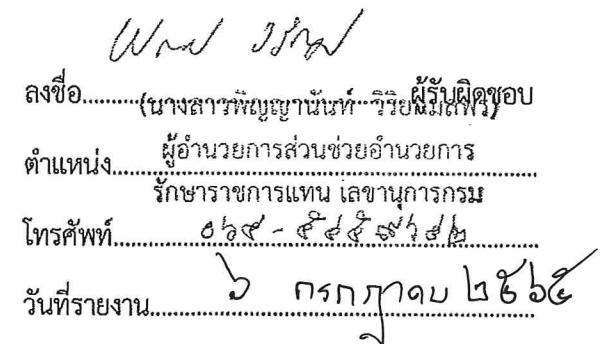 ลงชื่อ..........(นางสาวพิญญานันท์ ..........ผู้รับผิดชอบ
ตำแหน่ง..........ผู้อำนวยการส่วนช่วยอำนวยการ
รักษาราชการแทน เลขานุการกรม
โทรศัพท์..........
วันที่รายงาน..........๖ กรกฎาคม ๒๕๖๕